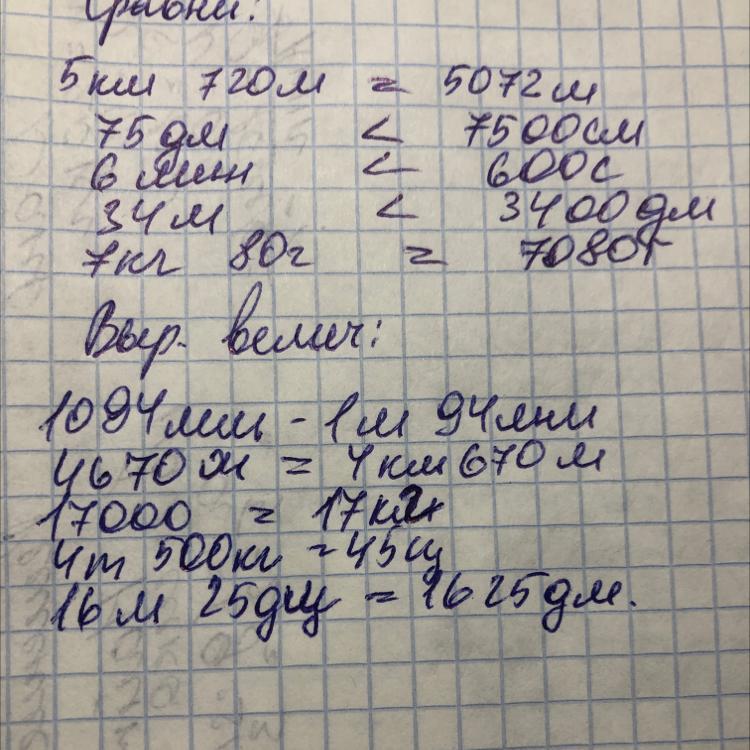 Сравни:
5км 720м = 5072м
75дм < 7500см
6 мин < 600с
34м < 3400дм
7кг 80г = 7080г
Выр. велич:
1094мм - 1м 94мм
4670м = 4км 670м
17000 =
4т 500кг = 45ц
16м 25дм = 1625дм.